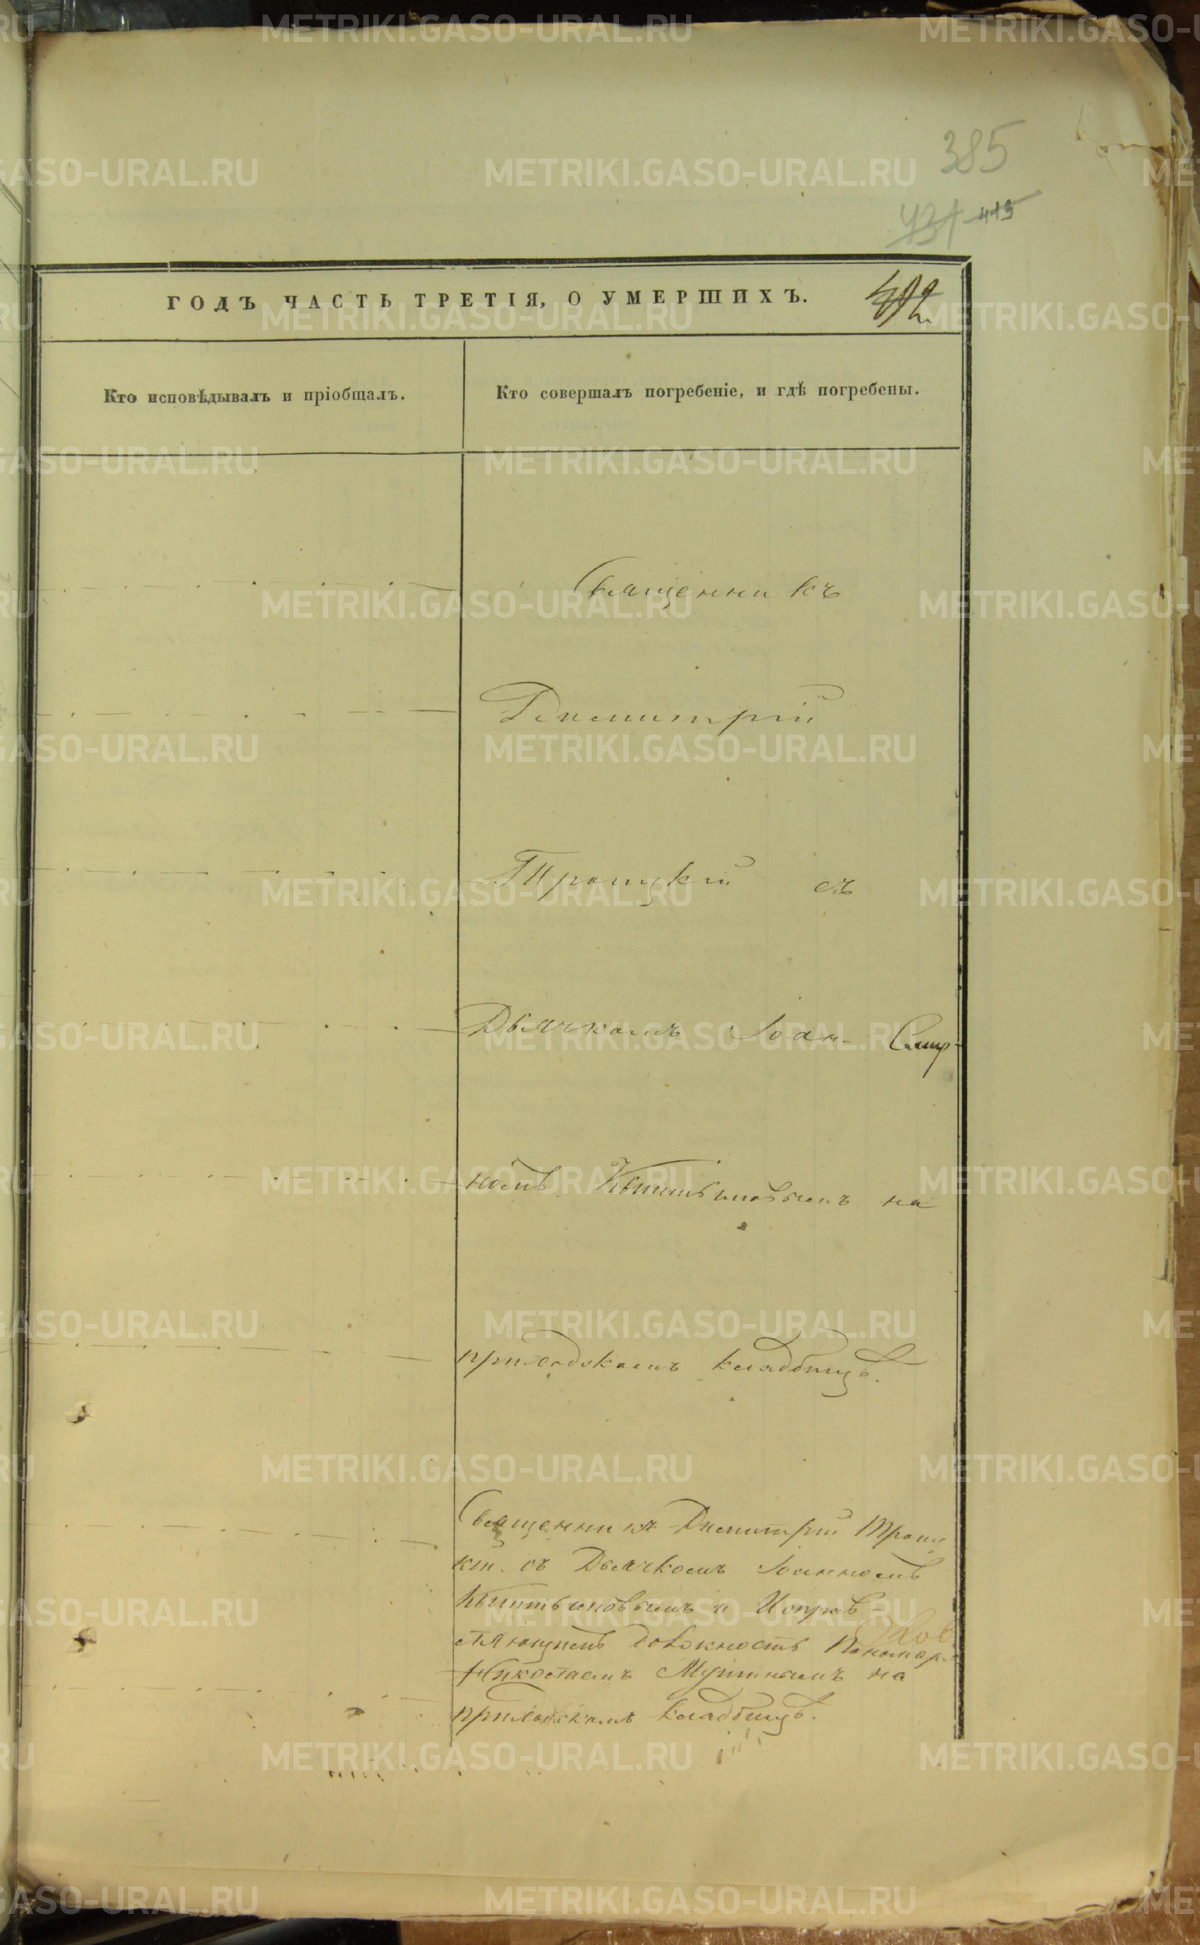 385
431 419
ГОДЪ ЧАСТЬ ТРЕТІЯ, О УМЕРШИХЪ.
Кто исповѣдывалъ и пріобщалъ.
Кто совершалъ погребеніе, и гдѣ погребены.
Священникъ
Димитрій
Троицкій съ
Дьячкомъ Іоан-
номъ на
приходскомъ кладбищѣ.
Священникъ Димитрій Троиц
кій съ Дьячкомъ Іоанномъ
и Исправ-
ляющимъ должность Пономар.
Николаемъ на
приходскомъ кладбищѣ.
METRIKI.GASO-URAL.RU